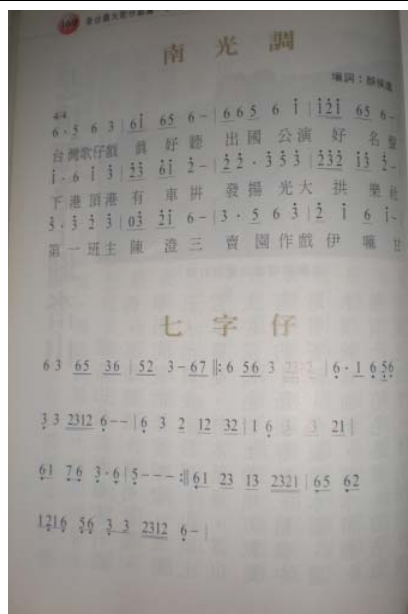 南光調
填詞：
4/4
6·5 6 3 | 6i 65 6- | 665 6 i | i2i 65 6-
台灣歌仔戲 真 好聽 出國 公演 好 名聲
i·6 i 3 | 23 6i 2- | 2 2·3 5 3 | 232 i3 2-
下港頂港 有 車拚 發揚 光大 拱 樂社
5·3 2 3 | 03 2i 6- | 3·5 6 3 | 2 i 6 i-
第一班主 陳 澄三 賣園作戲 伊 嘛 甘
七字仔
6 3 65 36 | 52 3-67 ‖: 6 56 3 2312 | 6·1 656
3 3 2312 6-- | 6 3 2 12 32 | 1 6 3 3 21 |
61 76 3·6 | 5--- :‖ 61 23 13 2321 | 65 62
1216 56 3 3 2312 6- |